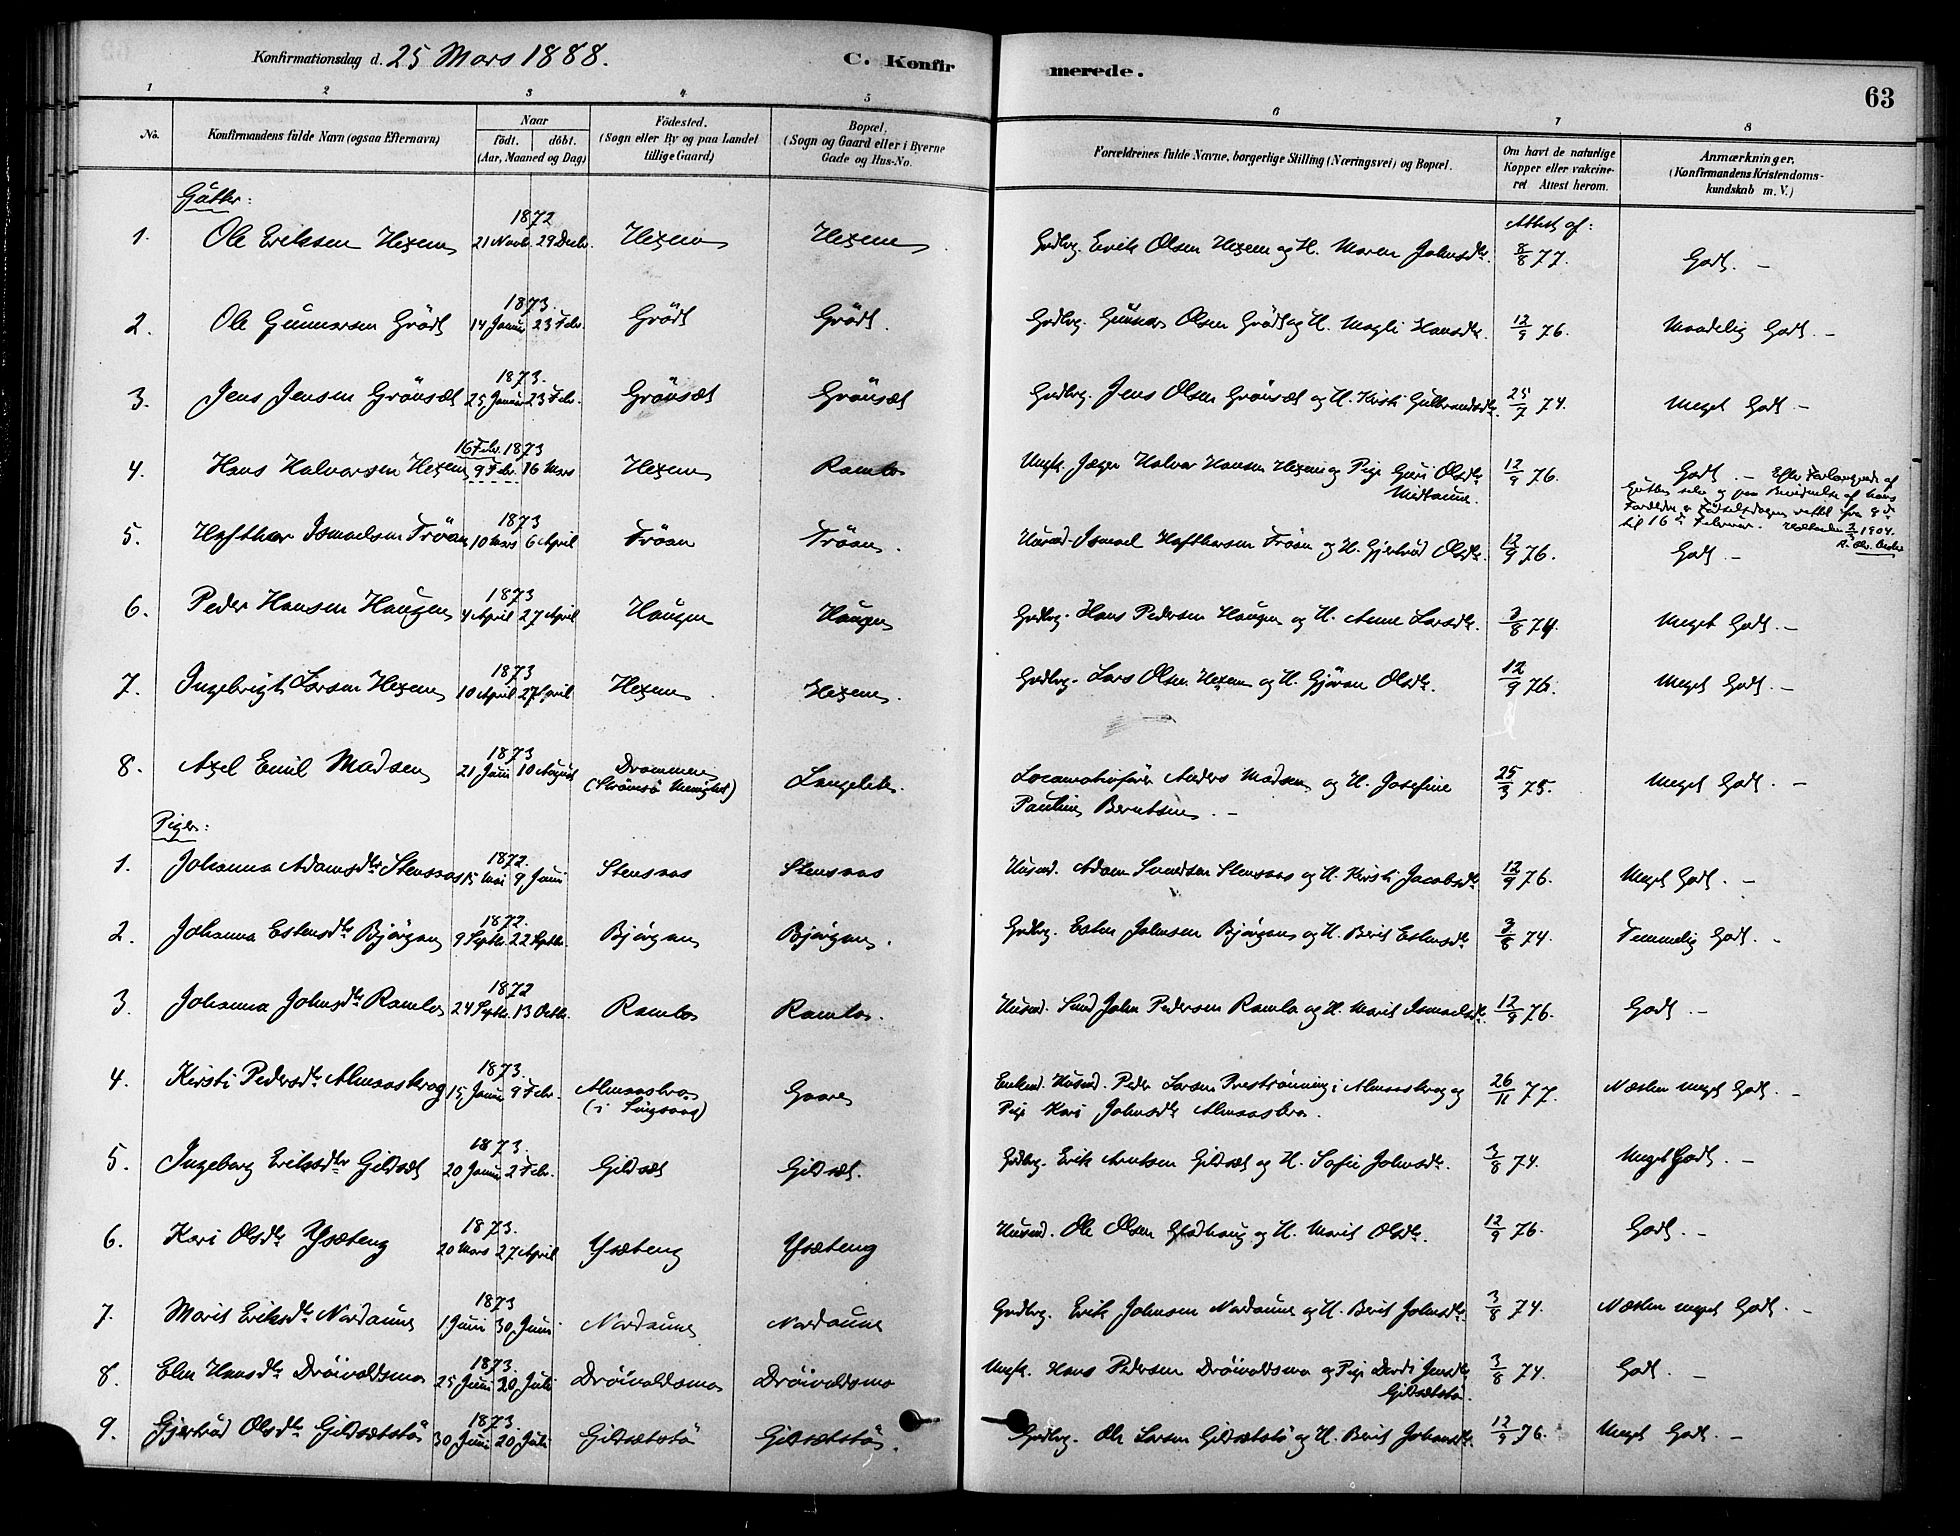 Konfirmationsdag d. 25 Mars 1888. C. Konfirmerede. 63
1 2 3 4 5 6 7 8
No. Konfirmandens fulde Navn (ogsaa Efternavn) Naar födt. döbt. (Aar, Maaned og Dag) Födested. (Sogn eller By og paa Landet tillige Gaard) Bopæl. (Sogn og Gaard eller i Byerne Gade og Hus-No. Forældrenes fulde Navne, borgerlige Stilling (Næringsvei) og Bopæl. Om havt de naturlige Kopper eller vakcineret Attest herom. Anmærkninger. (Konfirmandens Kristendomskundskab m. V.)
Gutter: Attest af:
1. Ole Eriksen Hexem 1872 21 Novb. 29 Decbr. Hexem Hexem Grdbrg. Erik Olsen Hexem og H. Maren Johnsdtr. 8/8 77. Godt. –
2. Ole Gunnarsen Grödt 1873. 14 Januar 23 Febr. Grödt Grödt. Grdbrg. Gunnar Olsen Grödt og H. Magli Hansdtr. 12/9 76. Maadelig Godt. –
3. Jens Jensen Grönset 1873. 25 Januar 23 Febr. Grönset Grönset Grdbrg. Jens Olsen Grönset og H. Kirsti Gulbrandsdtr. 25/7 74. Meget Godt –
4. Hans Halvorsen Hexem 16 Febr. 1873 9 Febr. 16 Mars Hexem Ramlo Ungk. Jæger Halvor Hansen Hexem og Pige Guri Olsdtr. Midtaune. 12/9 76. Godt. – Efter Forlangende af
Gutten selv og paa Bevidnelse af hans
Forældre er Födselsdagen rettet fra 9de
til 16de Februar. Holtaalen 1904.
5. Hafthor Ismaelsen Tröan 1873 10 Mars 6 April Tröan Tröan. Husmd. Ismael Hafthorsen Tröan og H. Gjertrud Olsdtr. 12/9 76. Godt –
6. Peder Hansen Haugen 1873 4 April 27 April Haugen Haugen Grdbrg. Hans Pedersen Haugen og H. Anne Larsdtr. 3/8 74. Meget Godt. –
7. Ingebrigt Larsen Hexem 1873 10 April 27 April Hexem. Hexem. Grdbrg. Lars Olsen Hexem og H. Gjöran Olsdtr. 12/9 76. Meget Godt. –
8. Axel Emil Madsen 1873 21 Juni 10 August Drammen (Strömsö Menighed) Langlete. Locomotivförer Anders Madsen og H. Josefine Pauline Berntsen. – 25/3 75. Meget Godt. –
Piger:
1. Johanna Adamsdtr Stensaas 1872. 15 Mai 9 Juni Stensaas Stensaas Husmd. Adam Svendsen Stensaas og H. Kirsti Jacobsdtr 12/9 76. Meget Godt. –
2. Johanna Estensdtr Björgen 1872. 9 Septbr. 22 Septbr. Björgen Björgen. Grdbrg. Esten Johnsen Björgen og H. Berit Estensdtr 3/8 74. Temmelig Godt. –
3. Johanna Johnsdtr Ramlo 1872 24 Septbr. 13 Octbr. Ramlo Ramlo. Husmd. Smed John Pedersen Ramlo og H. Marit Ismaelsdtr 12/9 76. Godt. –
4. Kirsti Pedersdtr Almaaskrog 1873. 15 Januar 9 Febr. Almaaskro (i Singsaas) Gaare Enkemd. Husmd. Peder Larsen Preströnning i Almaaskrog og Pige Kari Johnsdtr Almaaskro. 26/11 77. Næsten meget Godt. –
5. Ingeborg Eriksdtr Gildset 1873. 20 Januar 2 Febr. Gildset Gildset. Grdbrg. Erik Arntsen Gildset og H. Sofie Johnsdtr. 3/8 74. Meget Godt. –
6. Kari Olsdtr Ysæteng 1873. 20 Mars 27 April Ysæteng Ysæteng Husmd. Ole Olsen Gradhaug og H. Marit Olsdtr. 12/9 76. Godt. –
7. Marit Eriksdtr Nordaune 1873 1 Juni 30 Juni Nordaune Nordaune Grdbrg. Erik Johnsen Nordaune og H. Berit Johnsdtr. 3/8 74. Næsten meget Godt. –
8. Elen Hansdtr Dröivoldsmo 1873. 25 Juni 20 Juli Dröivoldsmo Dröivoldsmo Ungk. Hans Pedersen Dröivoldsmo og Pige Dordi Jensdtr Gildsetstö. 3/8 74. Godt. –
9. Gjertrud Olsdtr Gildsetstö 1873. 30 Juni 20 Juli Gildsetstö Gildsetstö. Grdbrg. Ole Larsen Gildsetstö og H. Berit Johansdtr. 12/9 76. Meget Godt. –